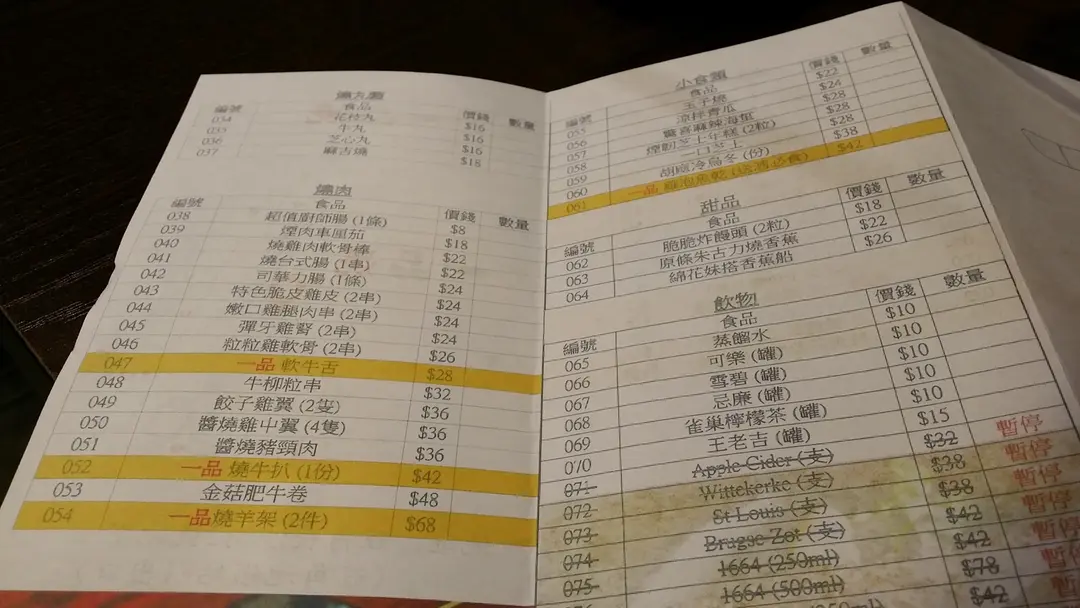 燒丸類
編號 食品 價錢 數量
034 花枝丸 $16
035 牛丸 $16
036 芝心丸 $16
037 麻吉燒 $18
燒肉
編號 食品 價錢 數量
038 超值廚師腸 (1條) $8
039 煙肉車厘茄 $18
040 燒雞肉軟骨棒 $22
041 燒台式腸 (1串) $22
042 司華力腸 (1條) $24
043 特色脆皮雞皮 (2串) $24
044 嫩口雞腿肉串 (2串) $24
045 彈牙雞腎 (2串) $24
046 粒粒雞軟骨 (2串) $26
047 一品 軟牛舌 $28
048 牛柳粒串 $32
049 餃子雞翼 (2隻) $36
050 醬燒雞中翼 (4隻) $36
051 醬燒豬頸肉 $36
052 一品 燒牛扒 (1份) $42
053 金菇肥牛卷 $48
054 一品燒羊架 (2件) $68
小食類
編號 食品 價錢 數量
055 玉子燒 $22
056 涼拌青瓜 $24
057 驚喜麻辣海蜇 $28
058 煙韌芝士年糕 (2粒) $28
059 一口芝士 $28
060 胡麻冷烏冬 (份) $38
061 一品 $42
甜品
編號 食品 價錢 數量
062 脆脆炸饅頭 (2粒) $18
063 原條朱古力燒香蕉 $22
064 綿花妹搭香蕉船 $26
飲物
編號 食品 價錢 數量
065 蒸餾水 $10
066 可樂 (罐) $10
067 雪碧 (罐) $10
068 忌廉 (罐) $10
069 雀巢檸檬茶 (罐) $10
070 王老吉 (罐) $15
071 Apple Cider (支) $32 暫停
072 Wittekerke (支) $38 暫停
073 St Louis (支) $38 暫停
074 Brugse Zot (支) $42 暫停
075 1664 (250ml) $42 暫停
1664 (500ml) $78 暫停
$42 暫